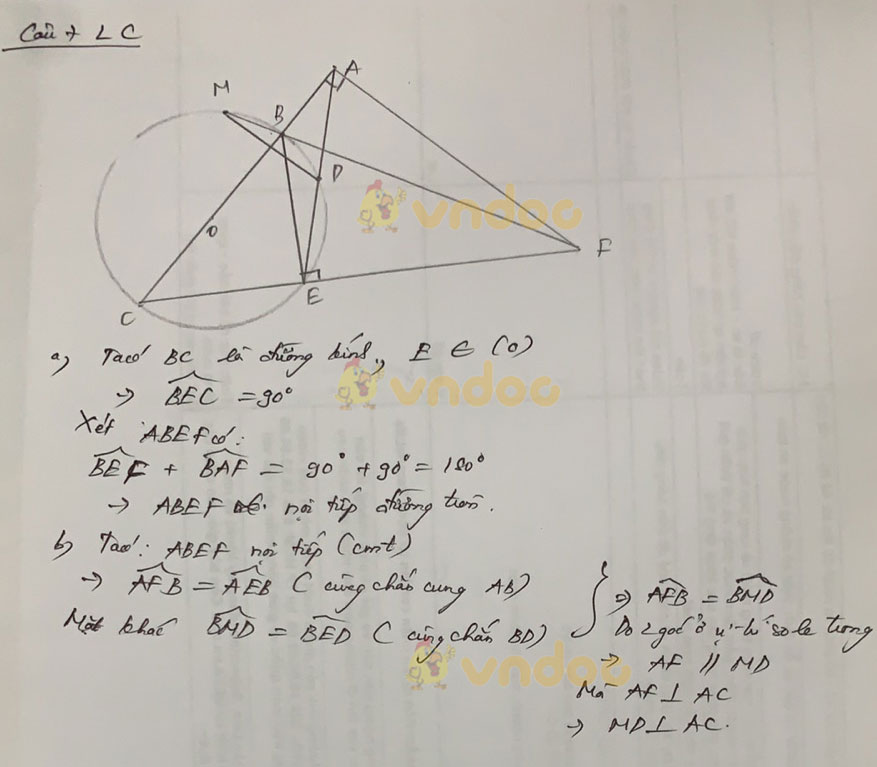 Câu 7 LC
A
M
B
D
O
F
E
C
a) Ta có BC là đường kính, E ∈ (O)
→ BEC = 90°
Xét ABEF có:
BEF + BAF = 90° + 90° = 180°
→ ABEF nội tiếp đường tròn.
b) Ta có: ABEF nội tiếp (cmt)
→ AFB = AEB ( cùng chắn cung AB)
Mặt khác BMD = BED ( cùng chắn BD)
⇒ AFB = BMD
Do 2 góc ở vị trí so le trong
→ AF // MD
Mà AF ⊥ AC
→ MD ⊥ AC.
vndoc
vndoc
vndoc